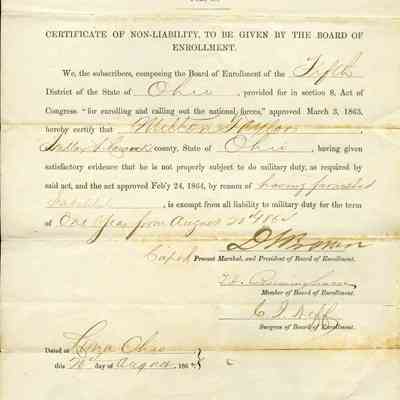 CERTIFICATE OF NON-LIABILITY, TO BE GIVEN BY THE BOARD OF
ENROLLMENT.
We, the subscribers, composing the Board of Enrollment of the Fifth
District of the State of Ohio, provided for in section 8, Act of
Congress "for enrolling and calling out the national forces," approved March 3, 1863,
hereby certify that Milton Taylor
county, State of Ohio, having given
satisfactory evidence that he is not properly subject to do military duty, as required by
said act, and the act approved Feb'y 24, 1864, by reason of having furnished
, is exempt from all liability to military duty for the term of
One Year from August 20th 1864
Capt D S Brown
Provost Marshal, and President of Board of Enrollment.
Member of Board of Enrollment.
C. J. Neff
Surgeon of Board of Enrollment.
Dated at Ohio
this day of August 186